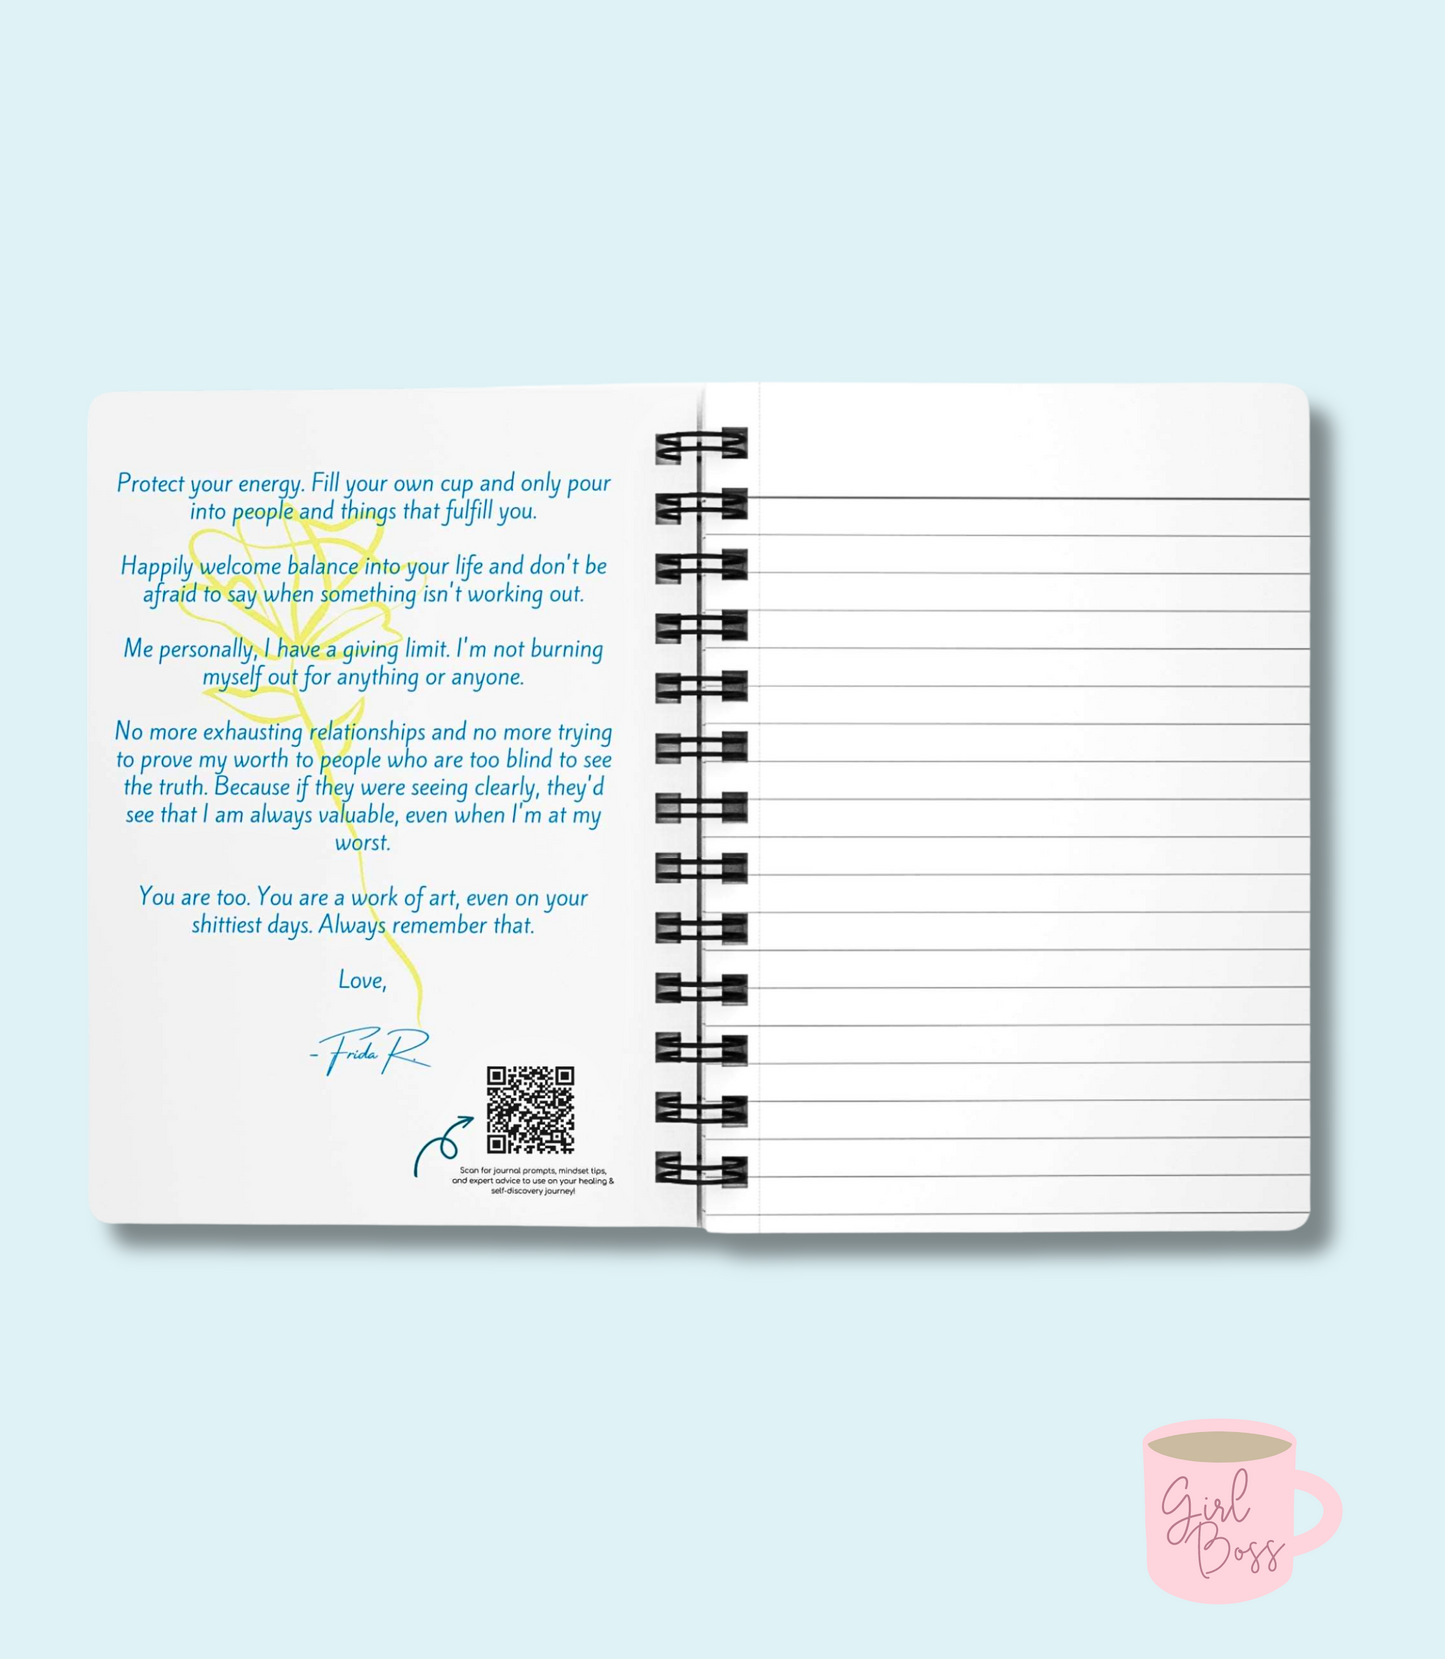 Protect your energy. Fill your own cup and only pour
into people and things that fulfill you.
Happily welcome balance into your life and don't be
afraid to say when something isn't working out.
Me personally, I have a giving limit. I'm not burning
myself out for anything or anyone.
No more exhausting relationships and no more trying
to prove my worth to people who are too blind to see
the truth. Because if they were seeing clearly, they'd
see that I am always valuable, even when I'm at my
worst.
You are too. You are a work of art, even on your
shittiest days. Always remember that.
Love,
- Frida R.
Scan for journal prompts, mindset tips,
and expert advice to use on your healing &
self-discovery journey!
Girl
Boss